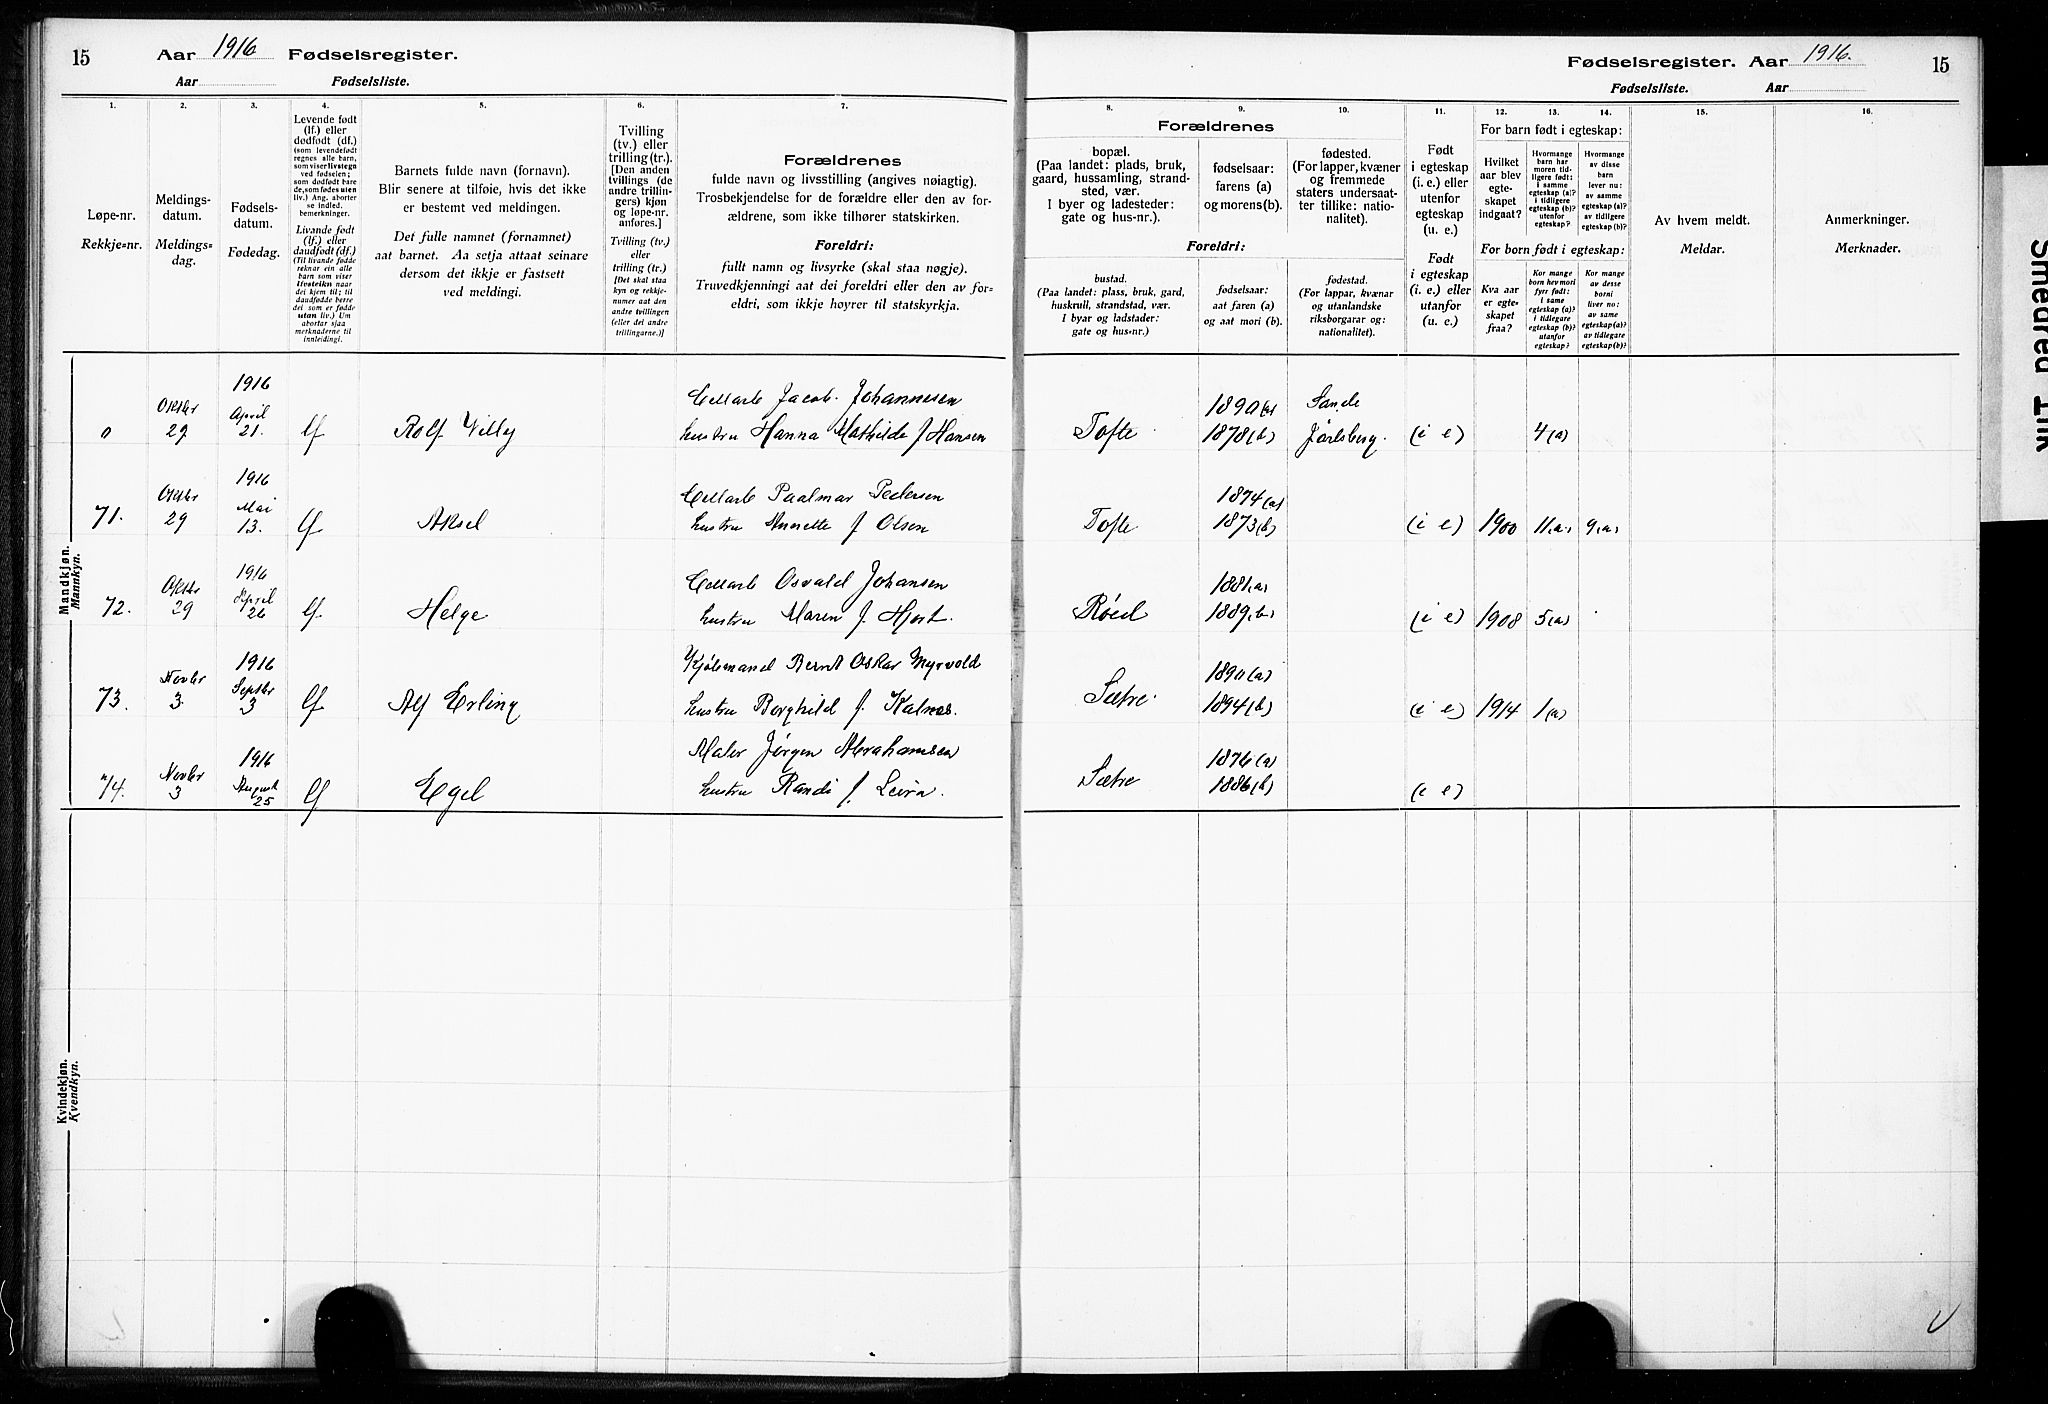 15 Aar 1916 Fødselsregister.
Aar Fødselsliste.
Fødselsregister. Aar 1916. 15
Fødselsliste. Aar
1. 2. 3. 4. 5. 6. 7.
Løpe-nr.
Rekkje=nr.
Meldings-
datum.
Meldings=
dag.
Fødsels-
datum.
Fødedag.
Levende født
(lf.) eller
dødfødt (df.)
(som levendefødt
regnes alle barn,
som viser livstegn
ved fødselen;
som dødfødt bare
de, som fødes uten
liv.) Ang. aborter
se indled.
bemerkninger.
Livande født
(lf.) eller
daudfødt (df.)
(Til livande fødde
reknar ein alle
barn som viser
livsteikn naar
dei kjem til; til
daudfødde berre
dei som er fødde
utan liv.) Um
abortar sjaa
merknaderne til
innleidingi.
Barnets fulde navn (fornavn).
Blir senere at tilføie, hvis det ikke
er bestemt ved meldingen.
Det fulle namnet (fornamnet)
aat barnet. Aa setja attaat seinare
dersom det ikkje er fastsett
ved meldingi.
Tvilling
(tv.) eller
trilling (tr.).
[Den anden
tvillings (de
andre trillin-
gers) kjøn
og løpe-nr.
anføres.]
Tvilling (tv.)
eller
trilling (tr.)
[Det skal staa
kyn og rekkje-
numer aat den
andre tvillingen
(eller dei andre
trillingarne.)]
Forældrenes
fulde navn og livsstilling (angives nøiagtig).
Trosbekjendelse for de forældre eller den av for-
ældrene, som ikke tilhører statskirken.
Foreldri:
fullt namn og livsyrke (skal staa nøgje).
Truvedkjenningi aat dei foreldri eller den av for=
eldri, som ikkje høyrer til statskyrkja.
8. 9. 10. 11. 12. 13. 14. 15. 16.
Forældrenes
bopæl.
(Paa landet: plads, bruk,
gaard, hussamling, strand-
sted, vær.
I byer og ladesteder:
gate og hus-nr.).
fødselsaar:
farens (a)
og morens (b).
fødested.
(For lapper, kvæner
og fremmede
staters undersaat-
ter tillike: natio-
nalitet).
Foreldri:
bustad.
(Paa landet: plass, bruk, gard,
huskrull, strandstad, vær.
I byar og ladstader:
gate og hus=nr.)
fødselsaar:
aat faren (a)
og aat mori (b).
fødestad.
(For lappar, kvænar
og utanlandske
riksborgarar og:
nationalitet).
Født
i egteskap
(i. e.) eller
utenfor
egteskap
(u. e.)
Født
i egteskap
(i. e.) eller
utanfor
(u. e.)
For barn født i egteskap:
Hvilket
aar blev
egte-
skapet
indgaat?
Hvormange
barn har
moren tid-
ligere født:
i samme
egteskap (a)?
i tidligere
egteskap (b)?
utenfor
egteskap?
Hvormange
av disse
barn
lever nu:
av samme
egteskap (a)?
av tidligere
egteskap (b)?
For born født i egteskap:
Kva aar
er egte-
skapet
fraa?
Kor mange
born hev mori
fyrr født:
i same
egteskap (a)?
i tidlegare
egteskap (b)?
utanfor
egteskap?
Kor mange
av desse
borni
liver no:
av same
egteskap (a)?
av tidlegare
egteskap (b)?
Av hvem meldt.
Meldar.
Anmerkninger.
Merknader.
Mandkjøn.
Mannkyn.
0 Oktbr 29 1916 April 21. lf Rolf Villy
Jacob Johannesen
hustru Hanna Mathilde f Hansen
Tofte 1890 (a) 1878 (b) Sande Jarlsberg. (i e) 4 (a)
71. Oktbr 29 1916 Mai 13. lf Aksel
Paalmar Pedersen
hustru Annette f Olsen
Tofte 1874 (a) 1873 (b) (i e) 1900 11 (a) 9 (a)
72. Oktbr 29 1916 April 26 lf Helge
Osvald Johansen
hustru Maren f Hjort.
Røed 1881 (a) 1889 (b) (i e) 1908 5 (a)
73. Novbr 3. 1916 Septbr 3 lf Alf Erling
Kjøbmand Bernt Oskar Myrvold
hustru Borghild f. Kalnes.
Sætre. 1890 (a) 1894 (b) (i e) 1914 1 (a)
74. Novbr 3 1916 August 25 lf Egel
Maler Jørgen Abrahamsen
hustru Randi f. Leira.
Sætre 1876 (a) 1886 (b) (i e)
Kvindekjøn.
Kvendkyn.
Smedrød Ihk